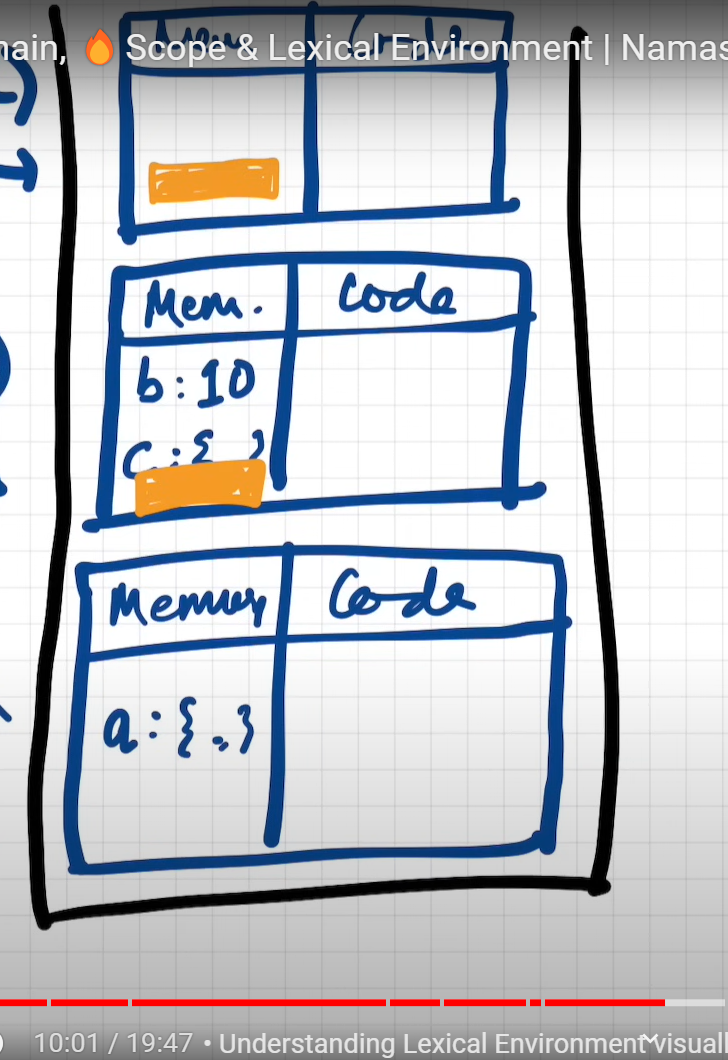 🔥 Scope & Lexical Environment | Namas
Mem. Code
b:10
c:{ }
Memory Code
a:{.}
10:01 / 19:47 • Understanding Lexical Environment visuall